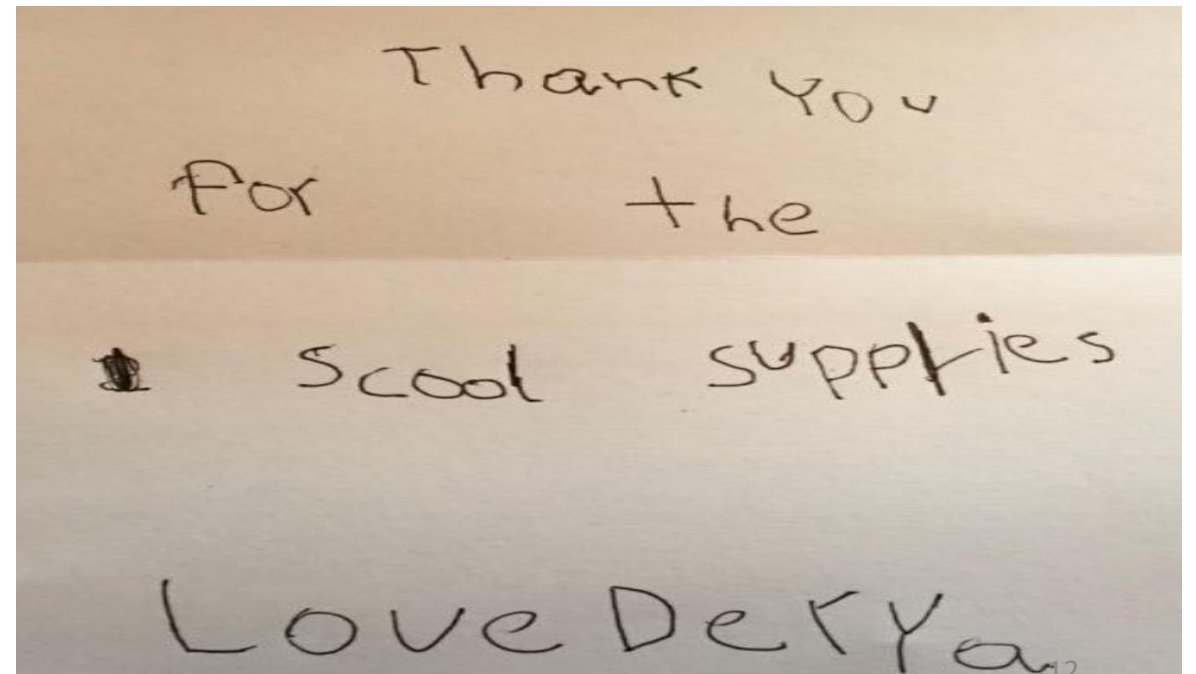 Thank you
for the
scool supplies
Love Derya
12